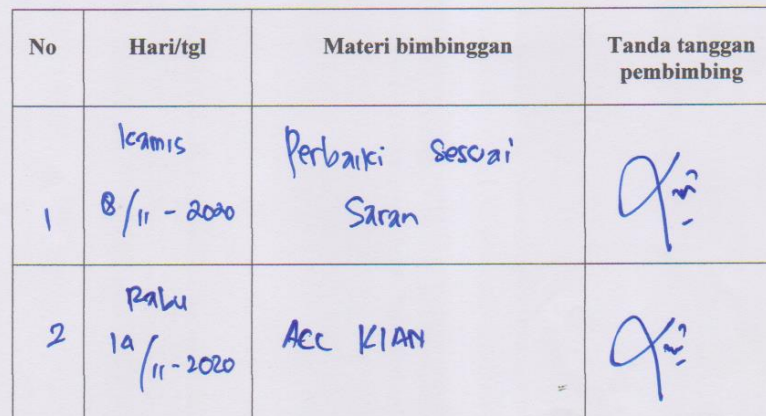 No Hari/tgl Materi bimbinggan Tanda tanggan
pembimbing
Kamis Perbaiki Sesuai
1 8/11-2020 Saran
Rabu
2 /11-2020 Acc KIAN